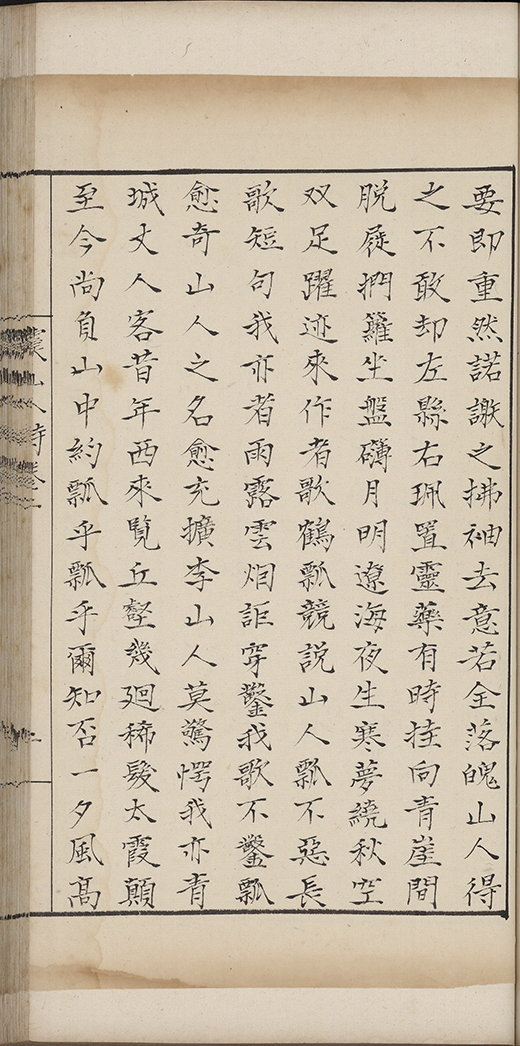 要即重然諾謝之拂袖去意若全落魄山人得
之不敢却左縣右珮置靈藥有時挂向青崖間
脱屣捫蘿坐盤礴月明遼海夜生寒夢繞秋空
双足躍迹來作者歌鶴瓢競説山人瓢不惡長
歌短句我亦者雨露雲烟詎穿鑿我歌不鑿瓢
愈奇山人之名愈充擴李山人莫驚愕我亦青
城丈人客昔年西來覽丘壑幾廻稀髮太霞顛
至今尚負山中約瓢乎瓢乎爾知否一夕風髙